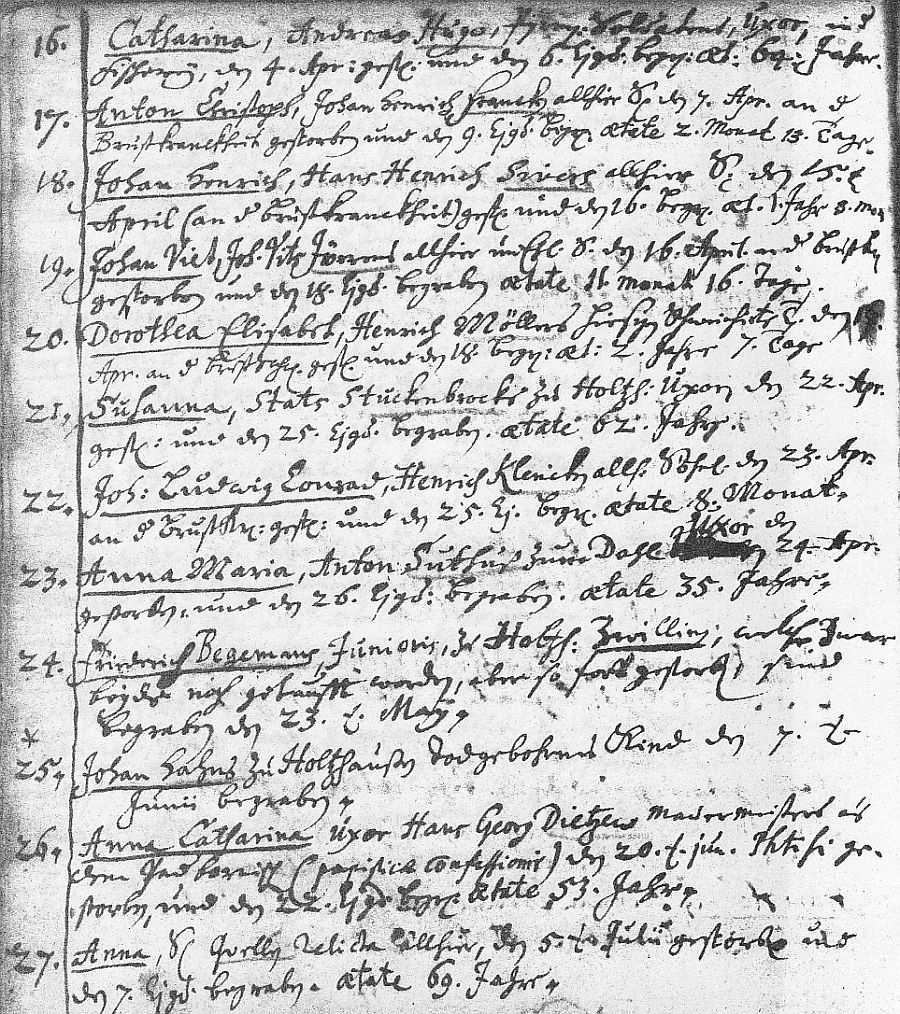 16. Catharina, Andreas Hugo, Uxor,
den 4. Apr: gest: und den 6. Ejgd. begr: æt: 69: Jahre.
17. Anton Christoph, Johan Henrich Francken allhier S. den 7. Apr. an d
Brustkranckheit gestorben und den 9. Ejgd. begr. ætate 2. Monat 13. Tage.
18. Johan Henrich, Hans Henrich Sivers allhier S. den 15. t
April (an d Brustkranckheit) gest: und den 16. begr. æt. 1. Jahr 3. mon
19. Johan Viet, Joh. Vits allhier S. den 16. April. an d
gestorben und den 18. Ejgd. begraben ætate 11. monat 16. Tage.
20. Dorothea Elisabet, Henrich Möllers T. den
Apr. an d gest: und den 18. begr: æt: 2. Jahre 7. Tage
21. Susanna, Stats Stuckenbrocks zu Holtzh: Uxor den 22. Apr.
gest: und den 25. Ejgd. begraben. ætate 62. Jahre.
22. Joh: Ludwig Conrad, Henrich Klencken allh. den 23. Apr.
an d Brustkr: gest: und den 25. Ej. begr. ætate 8. Monat.
23. Anna Maria, Anton zum Dahle Uxor den 24. Apr.
gestorben, und den 26. Ejgd: begraben. ætate 35. Jahre.
24. Friederich Begemans, Junioris, zu Holtzh. Zwilling, welche zwar
beyde noch getaufft worden, aber so fort gestorben, sind
begraben den 23. t. May.
*
25. Johan Hahns zu Holtzhausen Todgebohrenes Kind den 7. t.
Junii begraben.
26. Anna Catharina Uxor Hans Georg Dietzen Mauermeisters aus
dem (papisticæ confessionis) den 20. t. jun. ge-
storben, und den 22. Ejgd begr. ætate 53. Jahre.
27. Anna, relicta allhier, den 5. t. Julii gestorben und
den 7. Ejgd. begraben. ætate 69. Jahre.